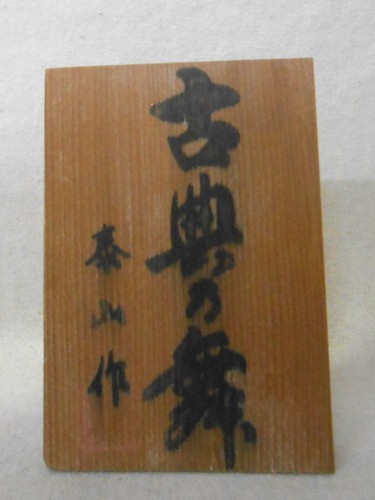 古典乃舞
泰山作